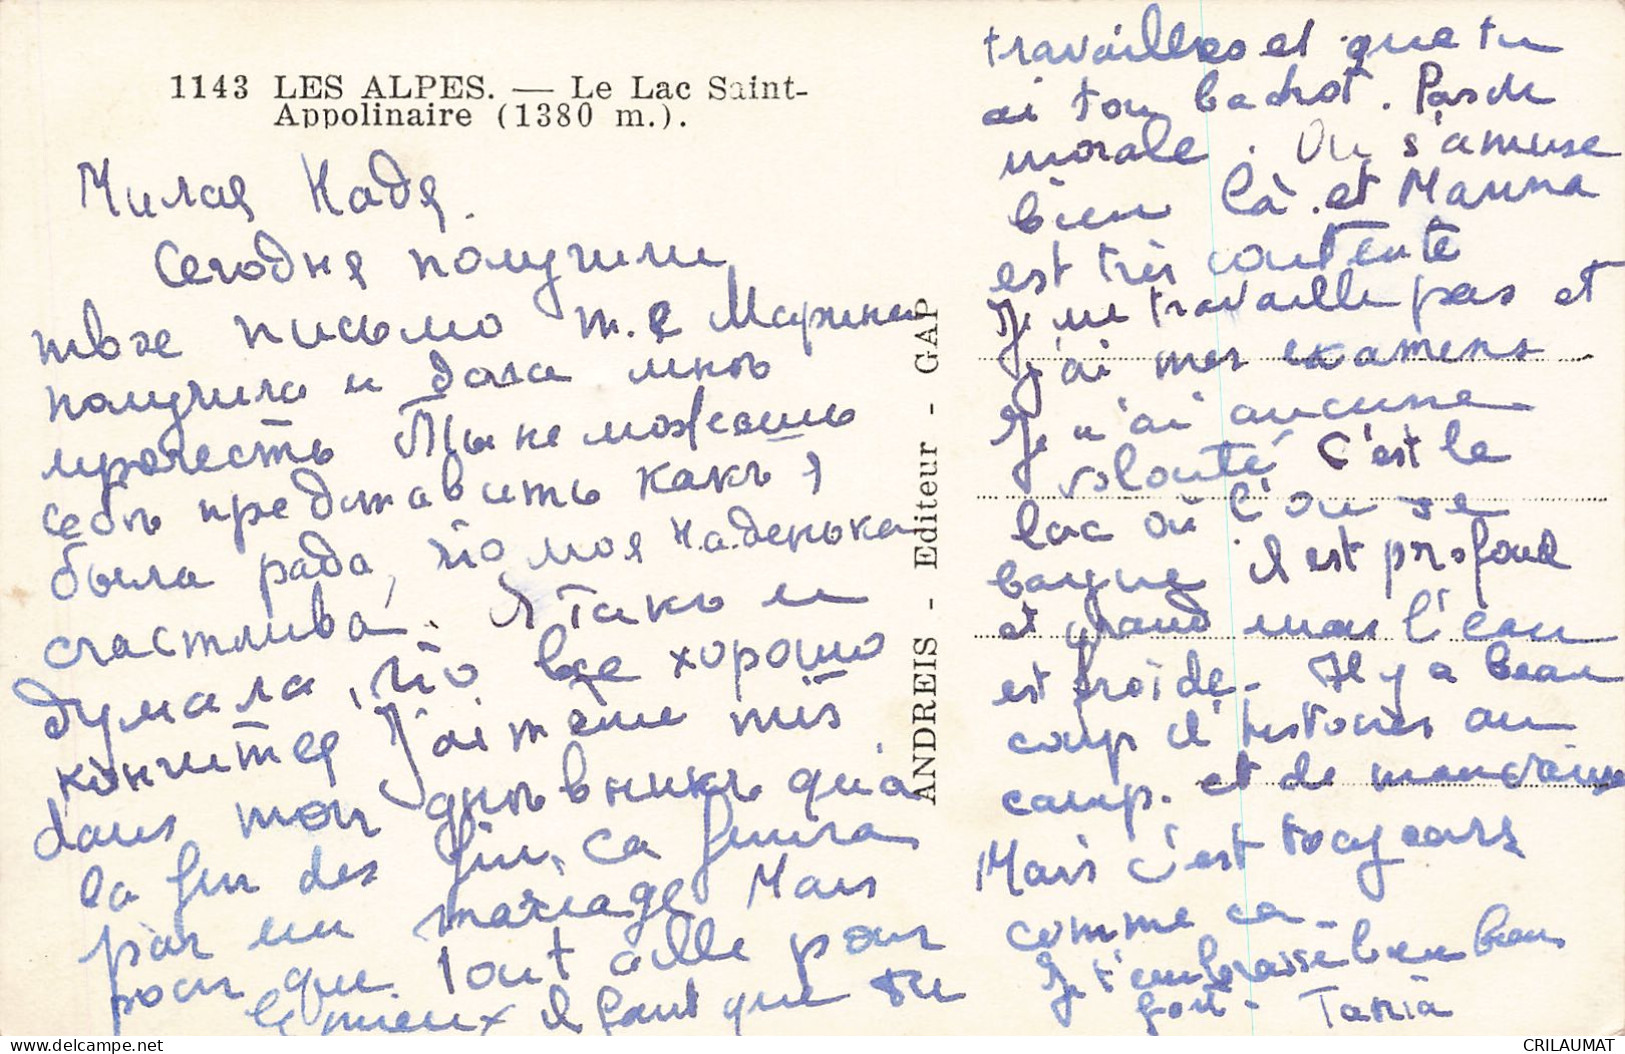 1143 LES ALPES. — Le Lac Saint-
Appolinaire (1380 m.).
Милая Надя.
Сегодня получили
твое письмо т.е Марина
получила и дала мнѣ
прочесть Ты не можешь
себѣ представить какъ я
была рада, что моя Наденька
счастлива. Я такъ и
думала, что все хорошо
кончится J'ai même mis
dans mon дневникъ qu'à
la fin des fin, ca finira
par un mariage Mais
pour que tout aille pour
le mieux il faut que tu
ANDREIS - Editeur - GAP
travailles et que tu
ai ton bachot. Pas de
morale. On s'amuse
bien là. et Marina
est très contente
Je ne travaille pas et
j'ai mes examens
Je n'ai aucune
volonté C'est le
lac où l'on se
baigne il est profond
et grand mais l'eau
est froide. Il y a beau
coup d'histoires au
camp. et de
Mais c'est toujours
comme ca
Je t'embrasse bien beau
fort - Tania
CRILAUMAT